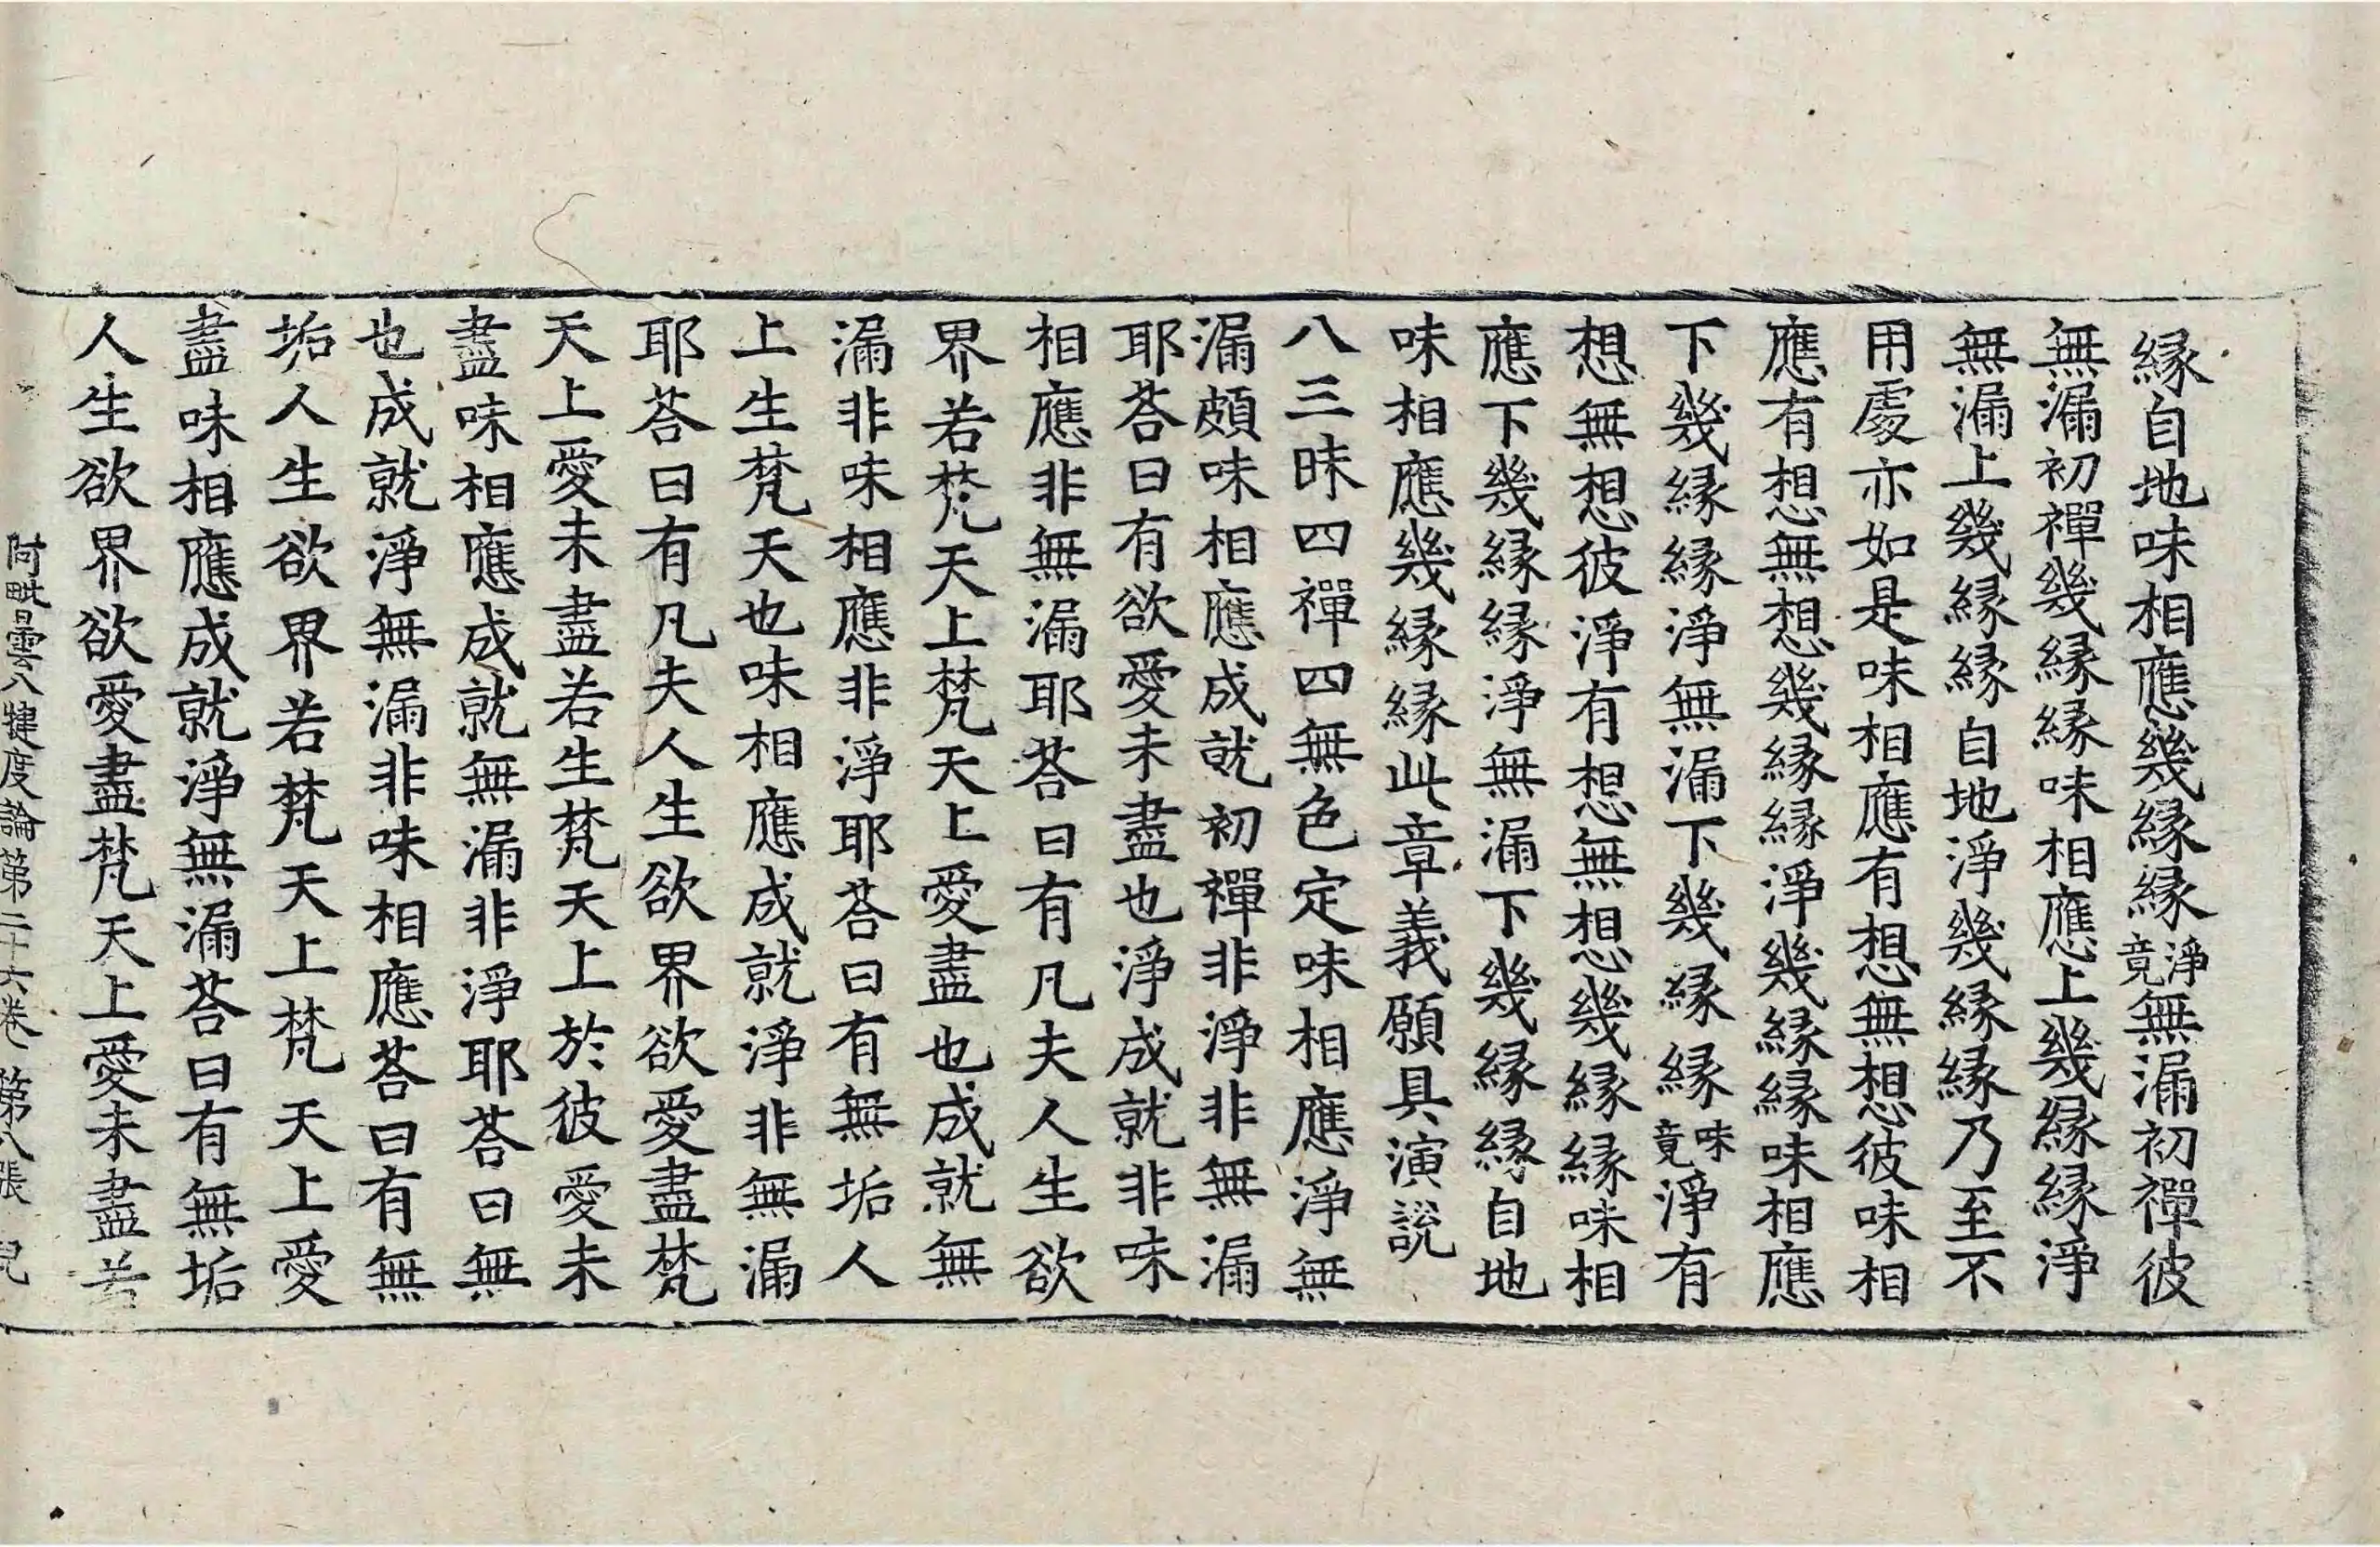 縁自地味相應幾縁縁淨竟無漏初禪彼
無漏初禪幾縁縁味相應上幾縁縁淨
無漏上幾縁縁自地淨幾縁縁乃至不
用處亦如是味相應有想無想彼味相
應有想無想幾縁縁淨幾縁縁味相應
下幾縁縁淨無漏下幾縁縁味竟淨有
想無想彼淨有想無想幾縁縁味相
應下幾縁縁淨無漏下幾縁縁自地
味相應幾縁縁此章義願具演説
八三昧四禪四無色定味相應淨無
漏頗味相應成就初禪非淨非無漏
耶荅曰有欲愛未盡也淨成就非味
相應非無漏耶荅曰有凡夫人生欲
界若梵天上梵天上愛盡也成就無
漏非味相應非淨耶荅曰有無垢人
上生梵天也味相應成就淨非無漏
耶荅曰有凡夫人生欲界欲愛盡梵
天上愛未盡若生梵天上於彼愛未
盡味相應成就無漏非淨耶荅曰無
也成就淨無漏非味相應荅曰有無
垢人生欲界若梵天上梵天上愛
盡味相應成就淨無漏荅曰有無垢
人生欲界欲愛盡梵天上愛未盡若
阿毗曇八犍度論第二十六卷 第八張 兒